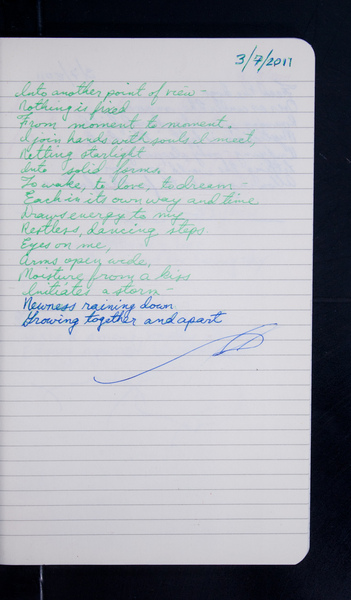 3/7/2011
Into another point of view -
Nothing is fixed
From moment to moment.
I join hands with souls I meet,
Knitting starlight
Into solid forms.
To wake, to love, to dream -
Each in its own way and time
Draws energy to my
Restless, dancing steps.
Eyes on me,
Arms open wide,
Moisture from a kiss
Initiates a storm -
Newness raining down
Growing together and apart